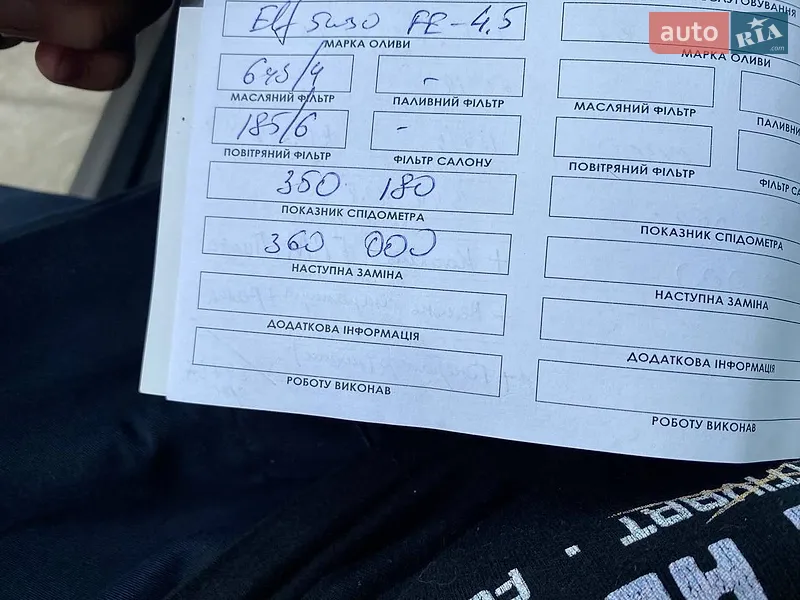 Elf 5w30 FE-4.5
МАРКА ОЛИВИ
675/4
-
МАСЛЯНИЙ ФІЛЬТР
ПАЛИВНИЙ ФІЛЬТР
185/6
-
ПОВІТРЯНИЙ ФІЛЬТР
ФІЛЬТР САЛОНУ
350 180
ПОКАЗНИК СПІДОМЕТРА
360 000
НАСТУПНА ЗАМІНА
ДОДАТКОВА ІНФОРМАЦІЯ
РОБОТУ ВИКОНАВ
МАРКА ОЛИВИ
МАСЛЯНИЙ ФІЛЬТР
ПАЛИВНИ
ПОВІТРЯНИЙ ФІЛЬТР
ФІЛЬТР СА
ПОКАЗНИК СПІДОМЕТРА
НАСТУПНА ЗАМІНА
ДОДАТКОВА ІНФОРМАЦІЯ
РОБОТУ ВИКОНАВ
auto
RIA
.com